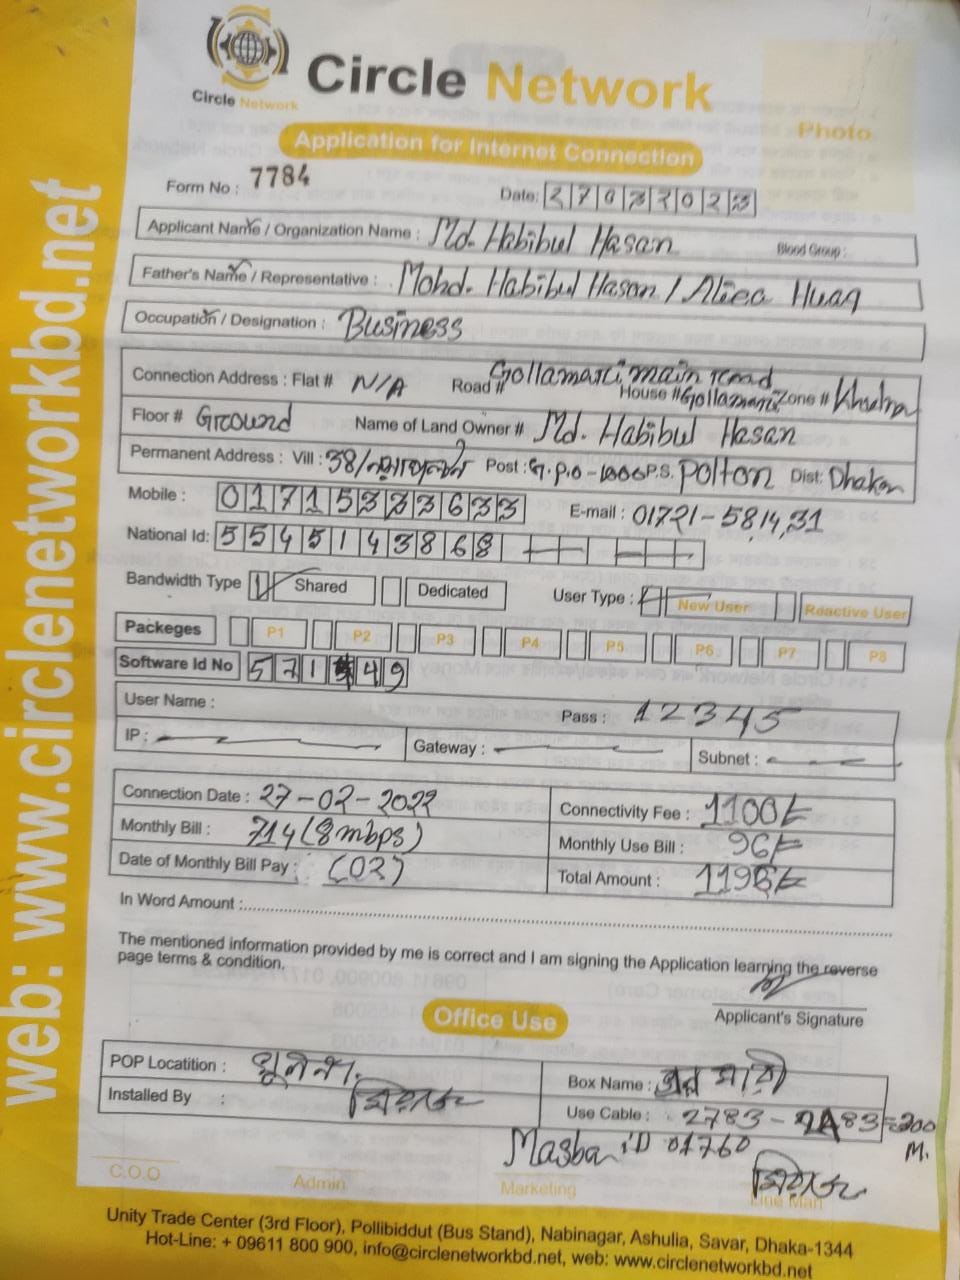 Circle Network
Circle Network
Photo
Application for Internet Connection
Form No : 7784
Date:
Applicant Name / Organization Name : Md. Habibul Hasan Blood Group :
Father's Name / Representative : Mohd. Habibul Hasan /
Occupation / Designation : Business
Connection Address : Flat # N/A Road # Gollamari main road House # Gollamari Zone # Khulna
Floor # Ground Name of Land Owner # Md. Habibul Hasan
Permanent Address : Vill : 38/ Post : G.P.O - 1000 P.S. Polton Dist: Dhaka
Mobile : 01715333633 E-mail : 01721-581431
National Id: 5545143868
Bandwidth Type Shared Dedicated User Type : New User Reactive User
Packeges P1 P2 P3 P4 P5 P6 P7 P8
Software Id No 571 49
User Name : Pass : 12345
IP : Gateway : Subnet :
Connection Date : 27-02-2022 Connectivity Fee : 1100/-
Monthly Bill : 714 (8 mbps) Monthly Use Bill : 96/-
Date of Monthly Bill Pay : (02) Total Amount : 1196/-
In Word Amount :
The mentioned information provided by me is correct and I am signing the Application learning the reverse
page terms & condition.
Applicant's Signature
Office Use
POP Locatition : খুলনা Box Name :
Installed By : Use Cable : 2783 - 2483 = 300
M.
Masba ID 01760
C.O.O Admin Marketing Line Man
Unity Trade Center (3rd Floor), Pollibiddut (Bus Stand), Nabinagar, Ashulia, Savar, Dhaka-1344
Hot-Line: + 09611 800 900, info@circlenetworkbd.net, web: www.circlenetworkbd.net
web: www.circlenetworkbd.net